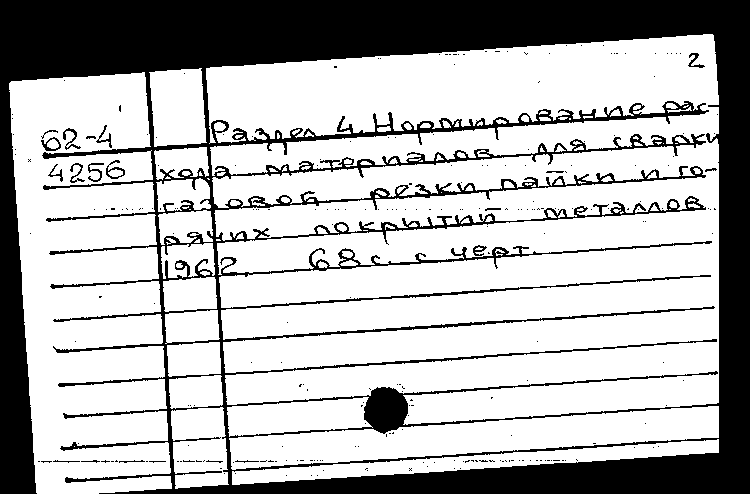 2
62-4 Раздел 4. Нормирование рас-
4256 хода материалов для сварки
газовой резки, пайки и го-
рячих покрытий металлов
1962. 68 с. с черт.